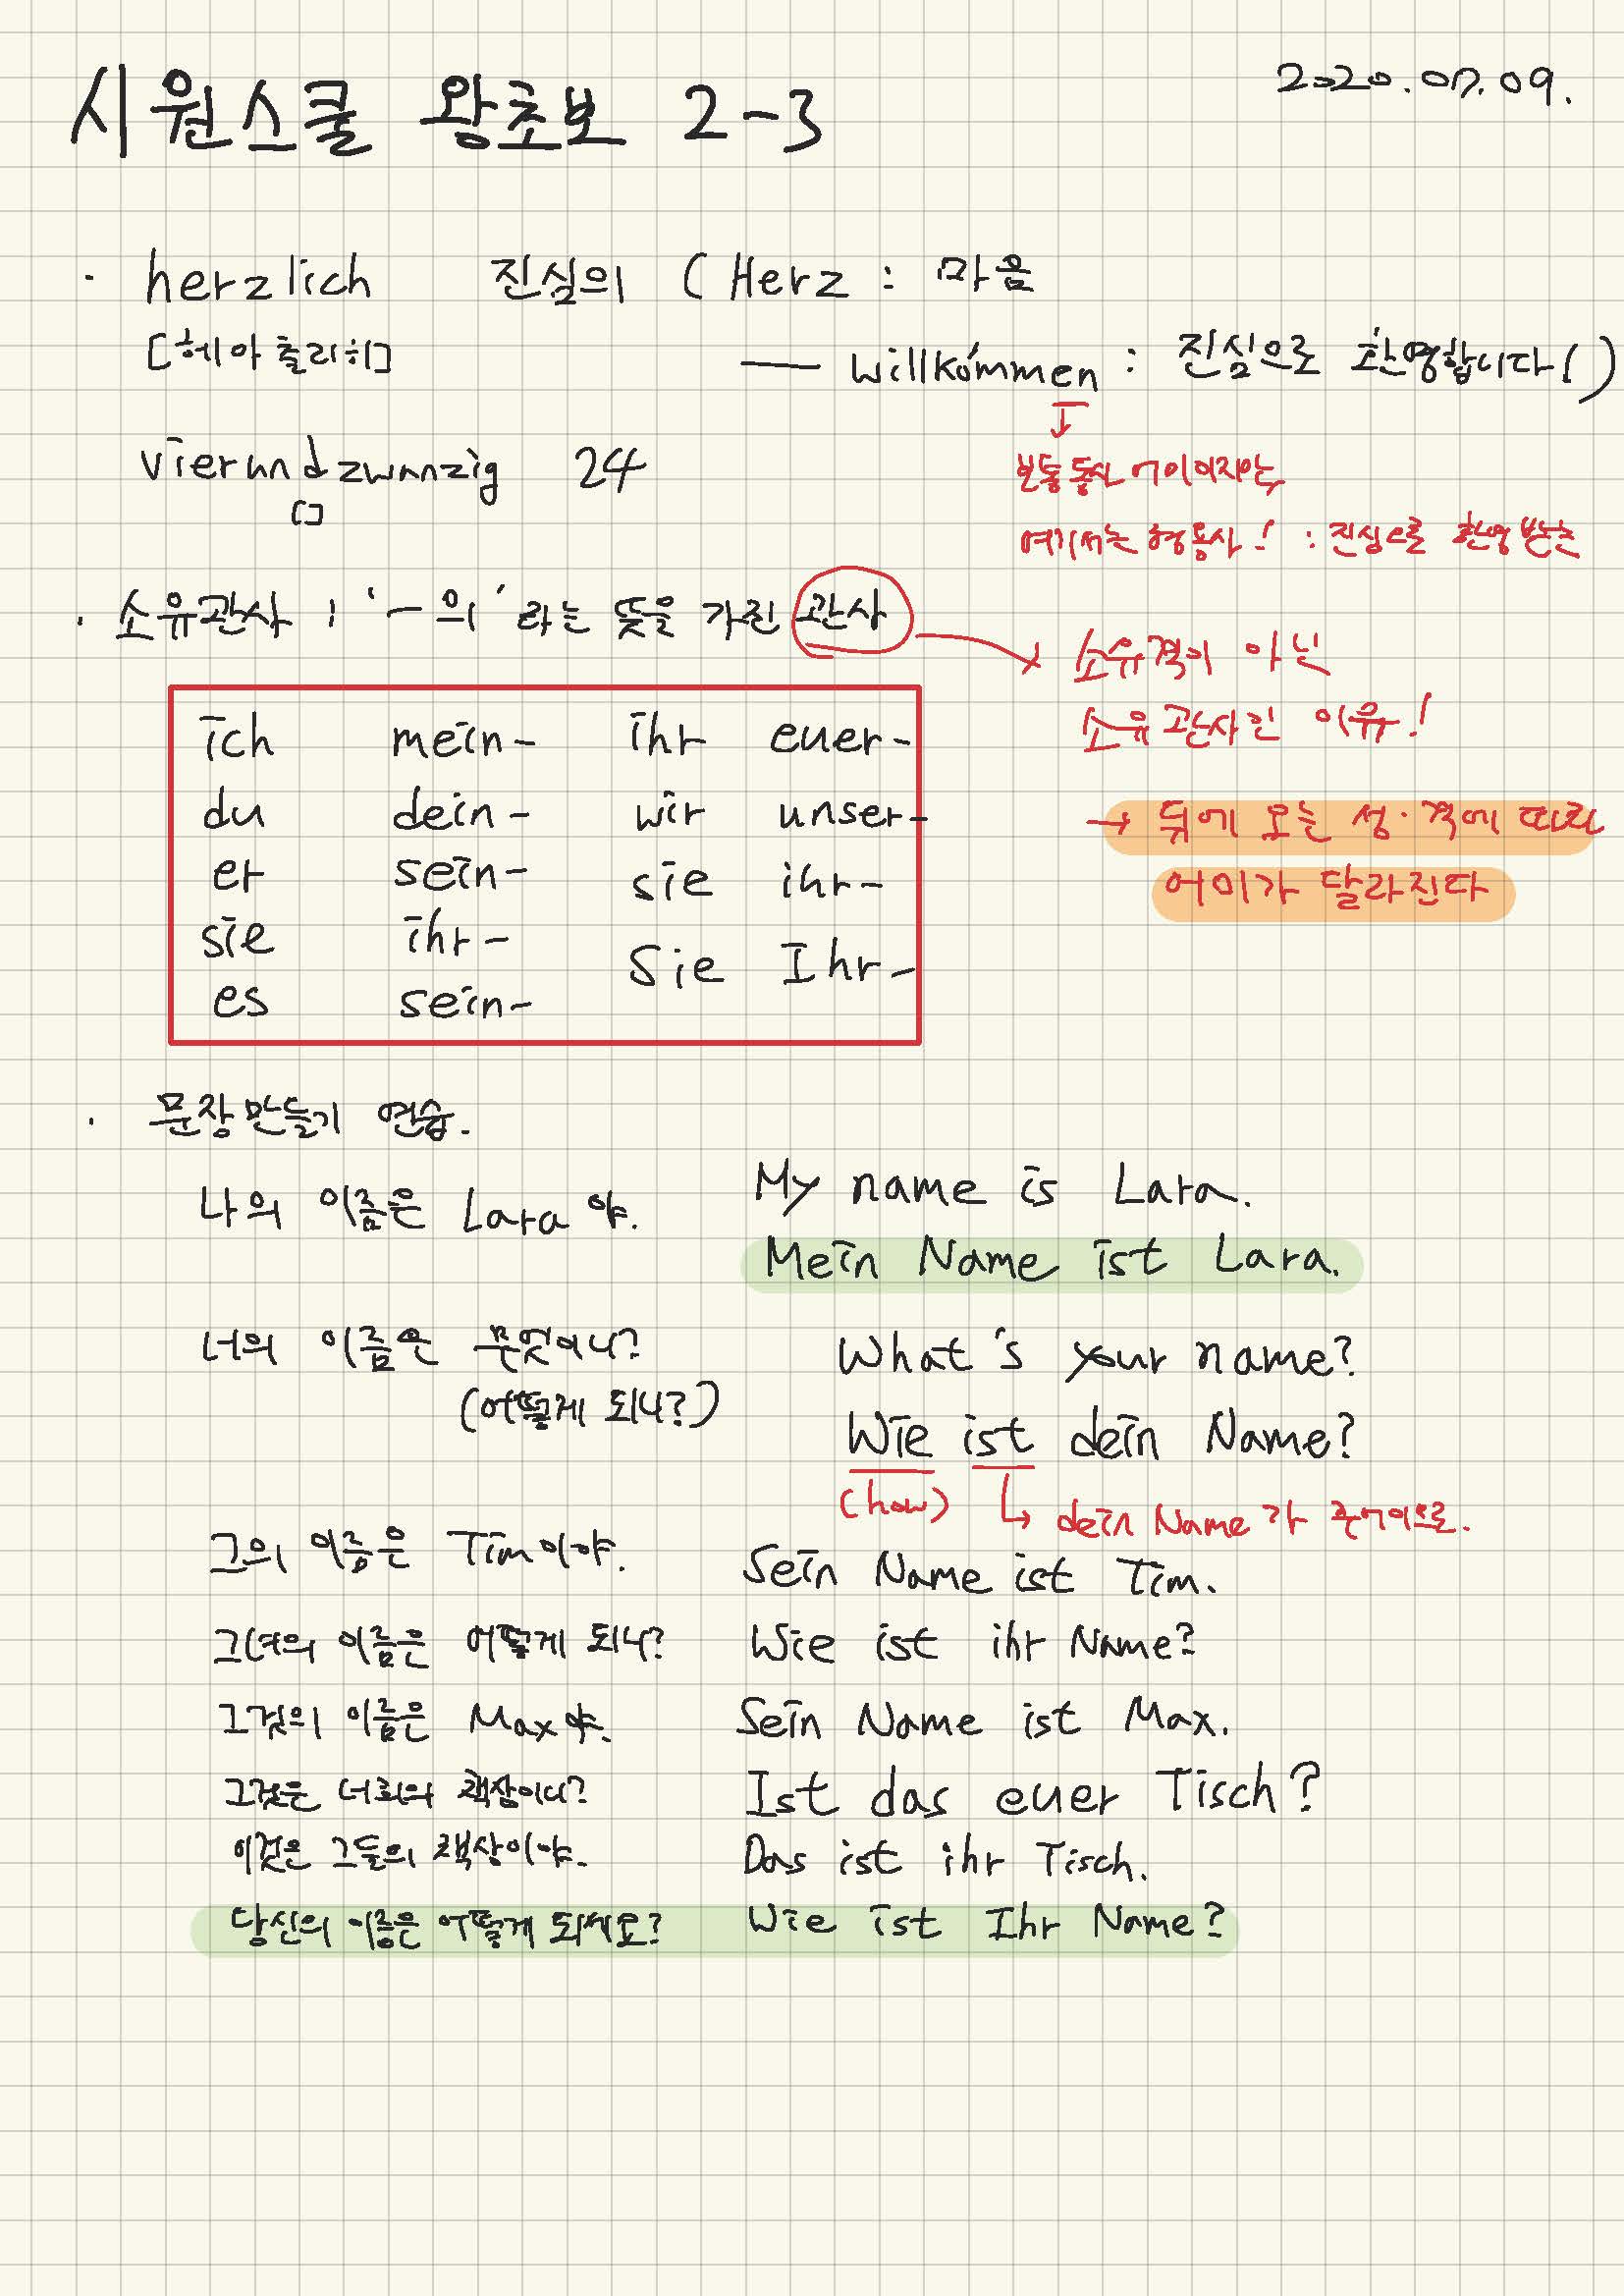 시원스쿨 왕초보 2-3
2020.07.09.
· herzlich 진심의 ( Herz : 마음
[헤아츨리히]
— Willkommen : 진심으로 환영합니다( )
↓
보통 동사 어미이지만,
여기서는 형용사! : 진심으로 환영받는
vierundzwanzig 24
[ㅌ]
· 소유관사 : '-의' 라는 뜻을 가진 관사
→ 소유격이 아닌
소유관사인 이유!
→ 뒤에 오는 성·격에 따라
어미가 달라진다
ich mein- ihr euer-
du dein- wir unser-
er sein- sie ihr-
sie ihr- Sie Ihr-
es sein-
· 문장만들기 연습.
나의 이름은 Lara 야. My name is Lara.
Mein Name ist Lara.
너의 이름은 무엇이니? What's your name?
(어떻게 되니?) Wie ist dein Name?
(how) ↳ dein Name 가 주어이므로.
그의 이름은 Tim이야. Sein Name ist Tim.
그녀의 이름은 어떻게 되니? Wie ist ihr Name?
그것의 이름은 Max야. Sein Name ist Max.
그것은 너희의 책상이니? Ist das euer Tisch?
이것은 그들의 책상이야. Das ist ihr Tisch.
당신의 이름은 어떻게 되세요? Wie ist Ihr Name?